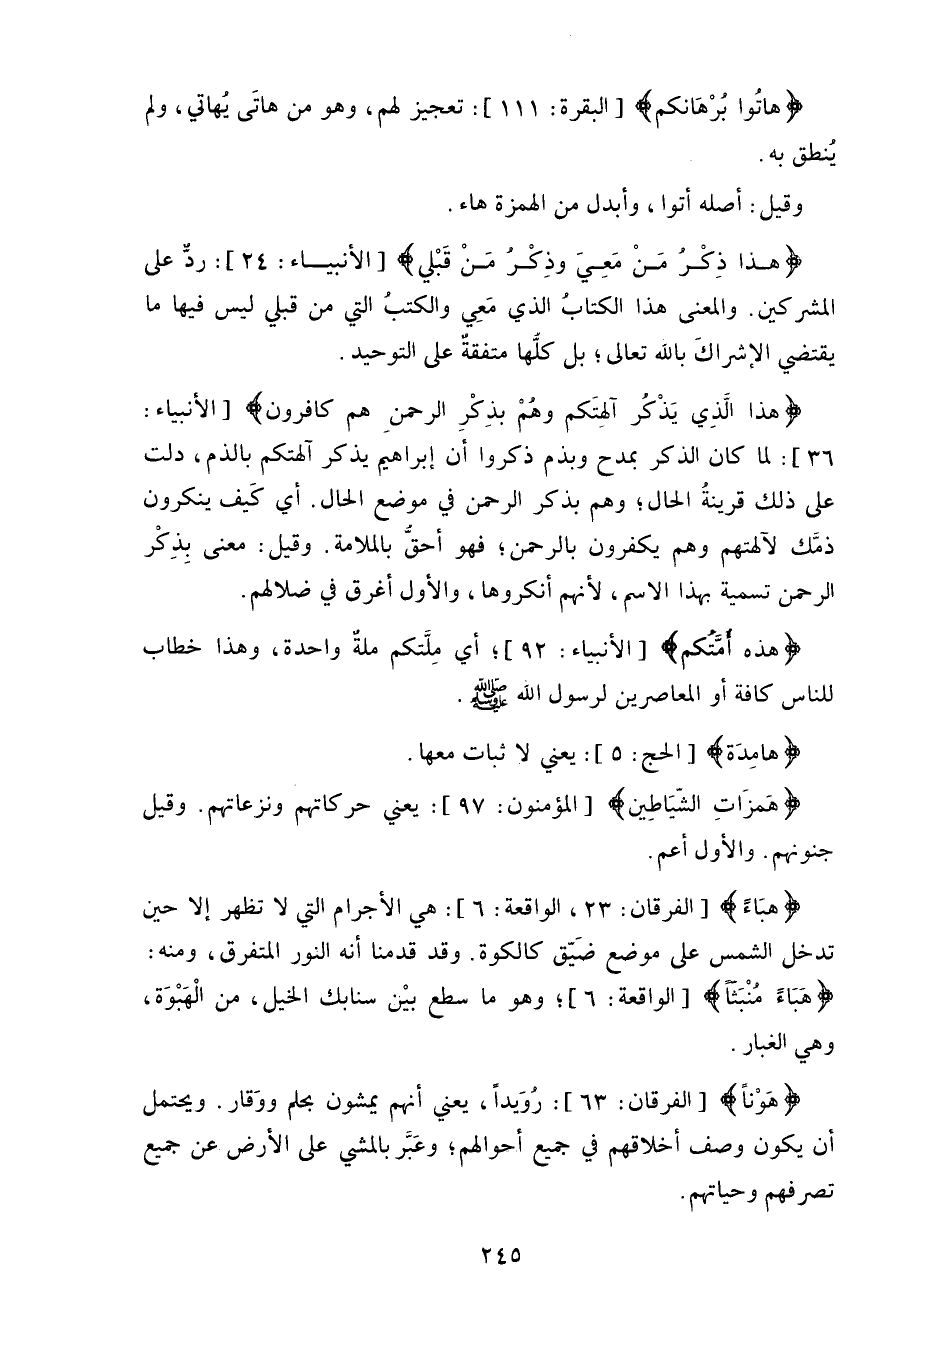 ﴿هاتُوا بُرْهَانكم﴾ [البقرة: ١١١]: تعجيز لهم، وهو من هاتَى يُهاتي، ولم
يُنطق به.
وقيل: أصله أتوا، وأبدل من الهمزة هاء.
﴿هـذا ذِكْـرُ مَـنْ مَعِـيَ وذِكْـرُ مَـنْ قَبْلي﴾ [الأنبيـــاء: ٢٤]: ردٌّ على
المشركين. والمعنى هذا الكتابُ الذي مَعِي والكتبُ التي من قبلي ليس فيها ما
يقتضي الإشراكَ بالله تعالى؛ بل كلُّها متفقةٌ على التوحيد.
﴿هذا الَّذِي يَذْكُر آلهتَكم وهُمْ بذِكْرِ الرحمنِ هم كافرون﴾ [الأنبياء:
٣٦]: لما كان الذكر بمدح وبذم ذكروا أن إبراهيم يذكر آلهتكم بالذم، دلت
على ذلك قرينةُ الحال؛ وهم بذكر الرحمن في موضع الحال. أي كَيف ينكرون
ذمَّك لآلهتهم وهم يكفرون بالرحمن؛ فهو أحقُّ بالملامة. وقيل: معنى بِذِكْر
الرحمن تسمية بهذا الاسم، لأنهم أنكروها، والأول أغرق في ضلالهم.
﴿هذه أُمَّتُكم﴾ [الأنبياء: ٩٢]؛ أي مِلَّتكم ملةٌ واحدة، وهذا خطاب
للناس كافة أو المعاصرين لرسول الله ﷺ.
﴿هامِدَة﴾ [الحج: ٥]: يعني لا ثبات معها.
﴿هَمزَاتِ الشّيَاطِين﴾ [المؤمنون: ٩٧]: يعني حركاتهم ونزعاتهم. وقيل
جنونهم. والأول أعم.
﴿هبَاءً﴾ [الفرقان: ٢٣، الواقعة: ٦]: هي الأجرام التي لا تظهر إلا حين
تدخل الشمس على موضع ضَيّق كالكوة. وقد قدمنا أنه النور المتفرق، ومنه:
﴿هَبَاءً مُنْبَثّاً﴾ [الواقعة: ٦]؛ وهو ما سطع بيْن سنابك الخيل، من الْهَبْوَة،
وهي الغبار.
﴿هَوْناً﴾ [الفرقان: ٦٣]: رُوَيداً، يعني أنهم يمشون بحلم ووَقار. ويحتمل
أن يكون وصف أخلاقهم في جميع أحوالهم؛ وعَبَّر بالمشي على الأرض عن جميع
تصرفهم وحياتهم.
٢٤٥